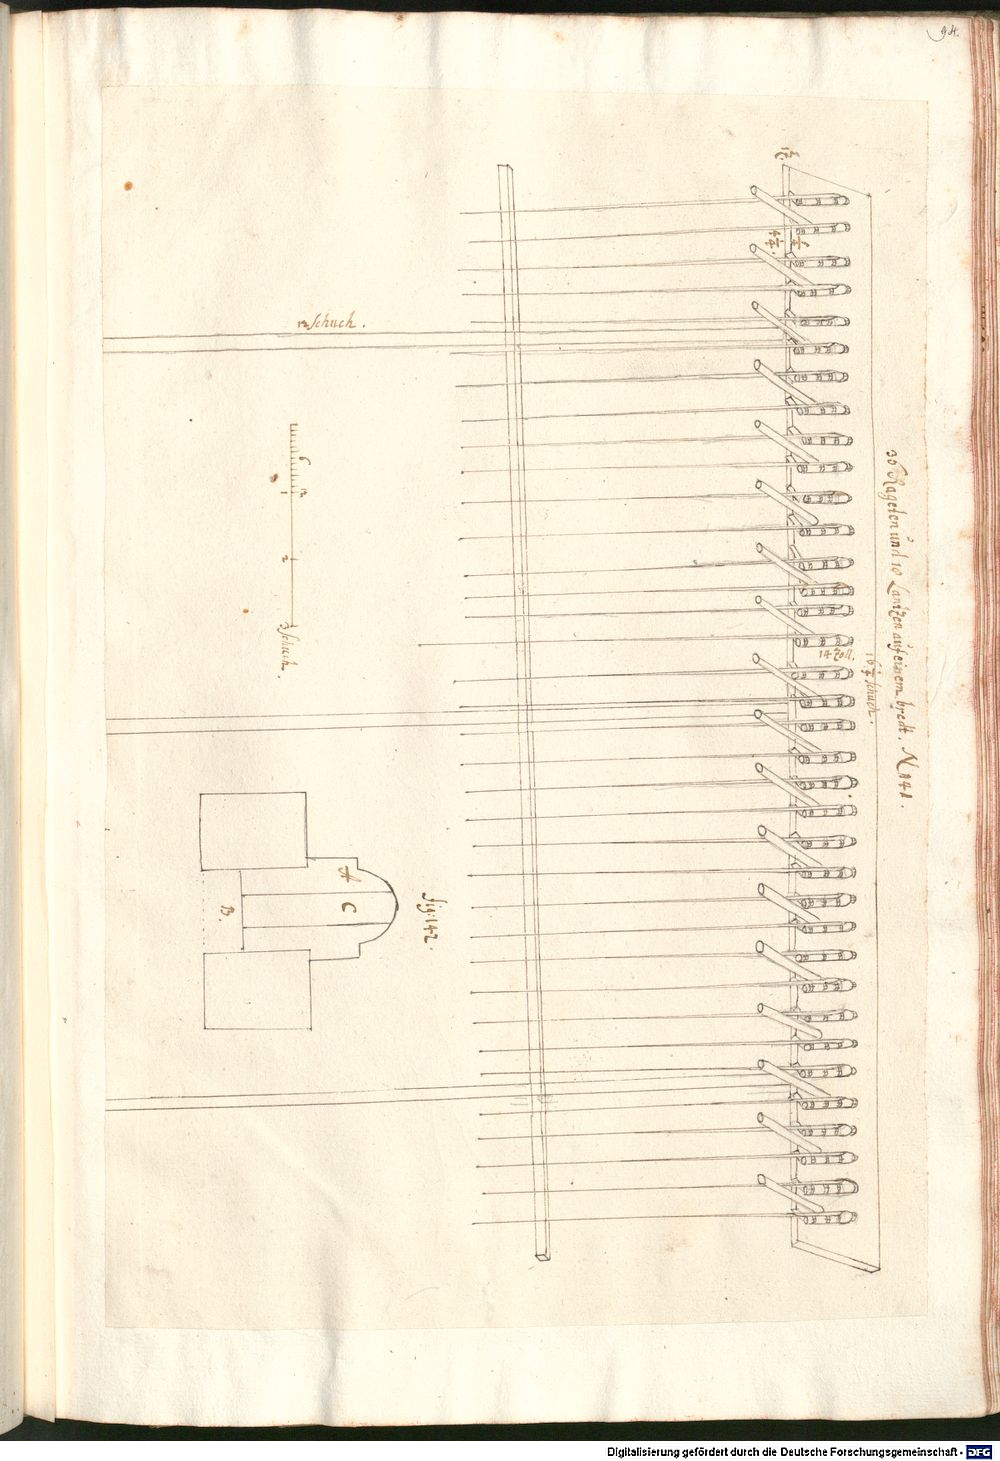 94.
36 Rageten und 10 Lantzen auf einem bredt. N 141.
16 1/2 schuch.
14 Zoll.
12 Schuch.
6
12
1
2
3 Schuch.
fig: 142.
A
C
B.
Digitalisierung gefördert durch die Deutsche Forschungsgemeinschaft - DFG